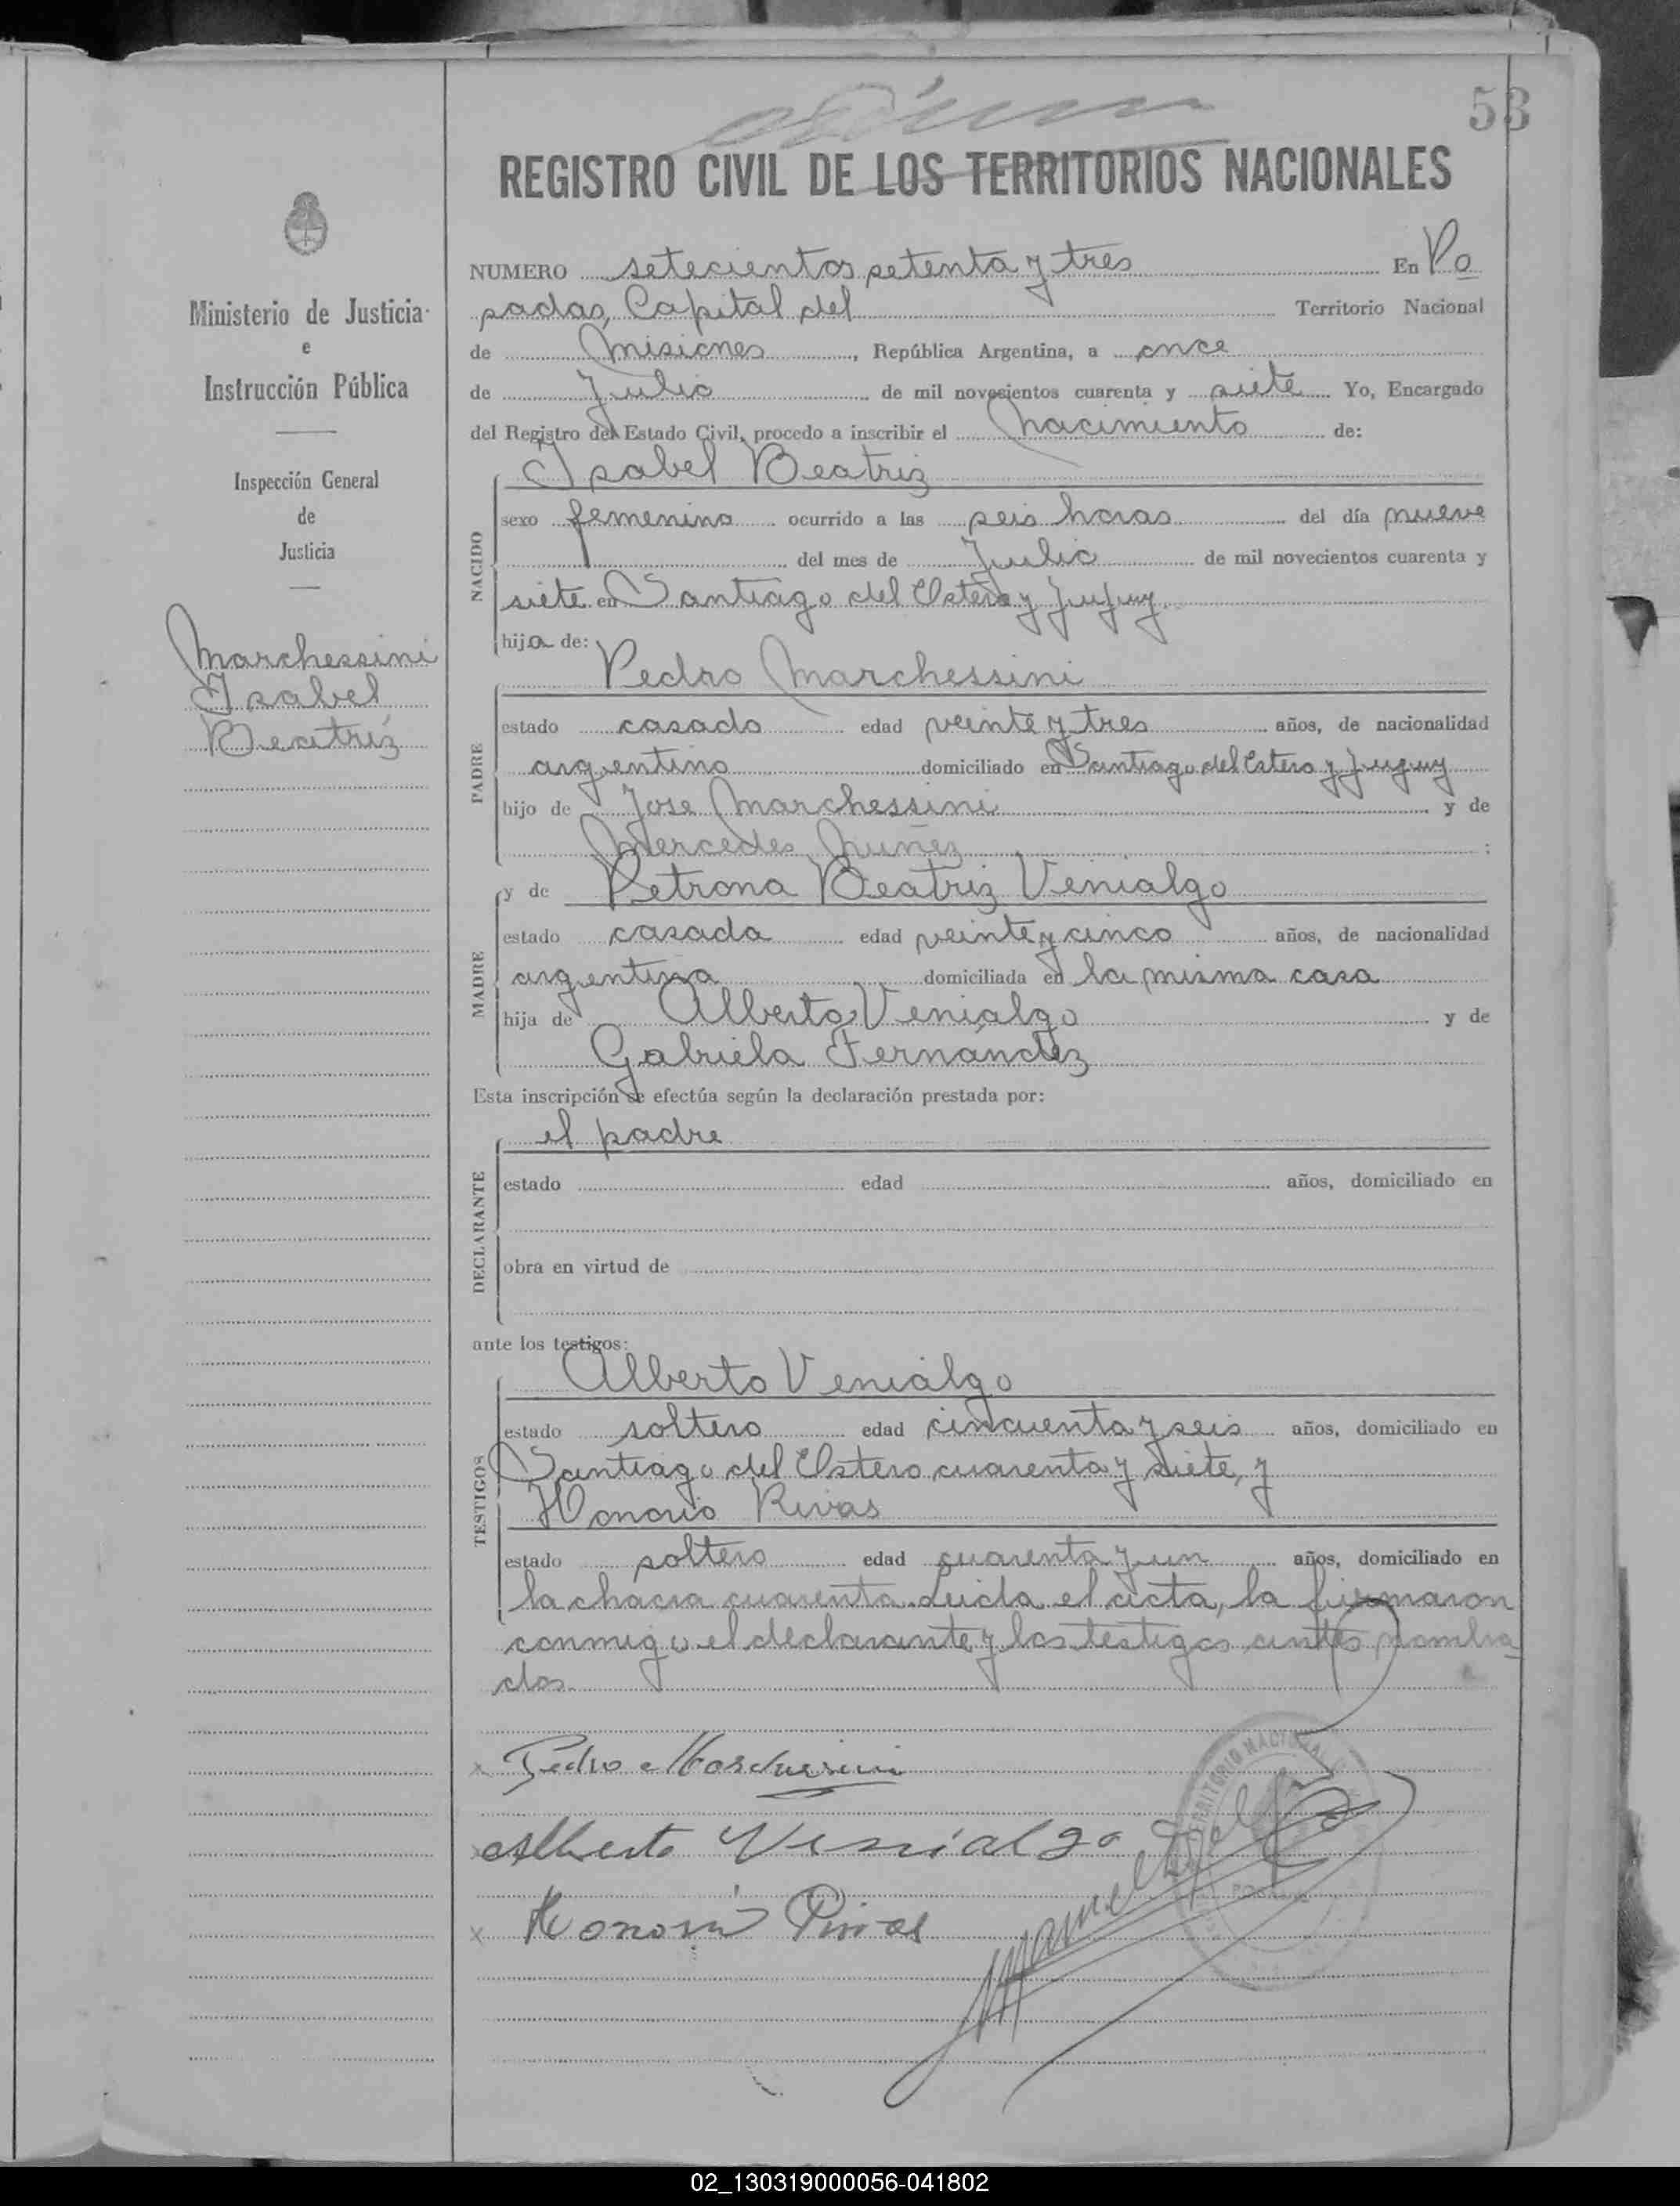 53
REGISTRO CIVIL DE LOS TERRITORIOS NACIONALES
NUMERO setecientos setenta y tres En Po
sadas, Capital del Territorio Nacional
de Misiones, República Argentina, a once
de Julio de mil novecientos cuarenta y siete Yo, Encargado
del Registro del Estado Civil, procedo a inscribir el nacimiento de:
NACIDO
Isabel Beatriz
sexo femenino ocurrido a las seis horas del día nueve
del mes de Julio de mil novecientos cuarenta y
siete en Santiago del Estero y Jujuy
hija de:
PADRE
Pedro Marchessini
estado casado edad veinte y tres años, de nacionalidad
argentino domiciliado en Santiago del Estero y Jujuy
hijo de Jose Marchessini y de
Mercedes Nuñez ;
MADRE
y de Petrona Beatriz Venialgo
estado casada edad veinte y cinco años, de nacionalidad
argentina domiciliada en la misma casa
hija de Alberto Venialgo y de
Gabriela Fernandez
Esta inscripción se efectúa según la declaración prestada por:
DECLARANTE
el padre
estado edad años, domiciliado en
obra en virtud de
ante los testigos:
TESTIGOS
Alberto Venialgo
estado soltero edad cincuenta y seis años, domiciliado en
Santiago del Estero cuarenta y siete, y
Honorio Rivas
estado soltero edad cuarenta y un años, domiciliado en
la chacra cuarenta. Leida el acta, la firmaron
conmigo el declarante y los testigos antes nombra
dos.
x Pedro Marchessini
x Alberto Venialgo
x Honorio Rivas
Manuel
TERRITORIO NACIONAL
Ministerio de Justicia
e
Instrucción Pública
Inspección General
de
Justicia
Marchessini
Isabel
Beatriz
02_130319000056-041802